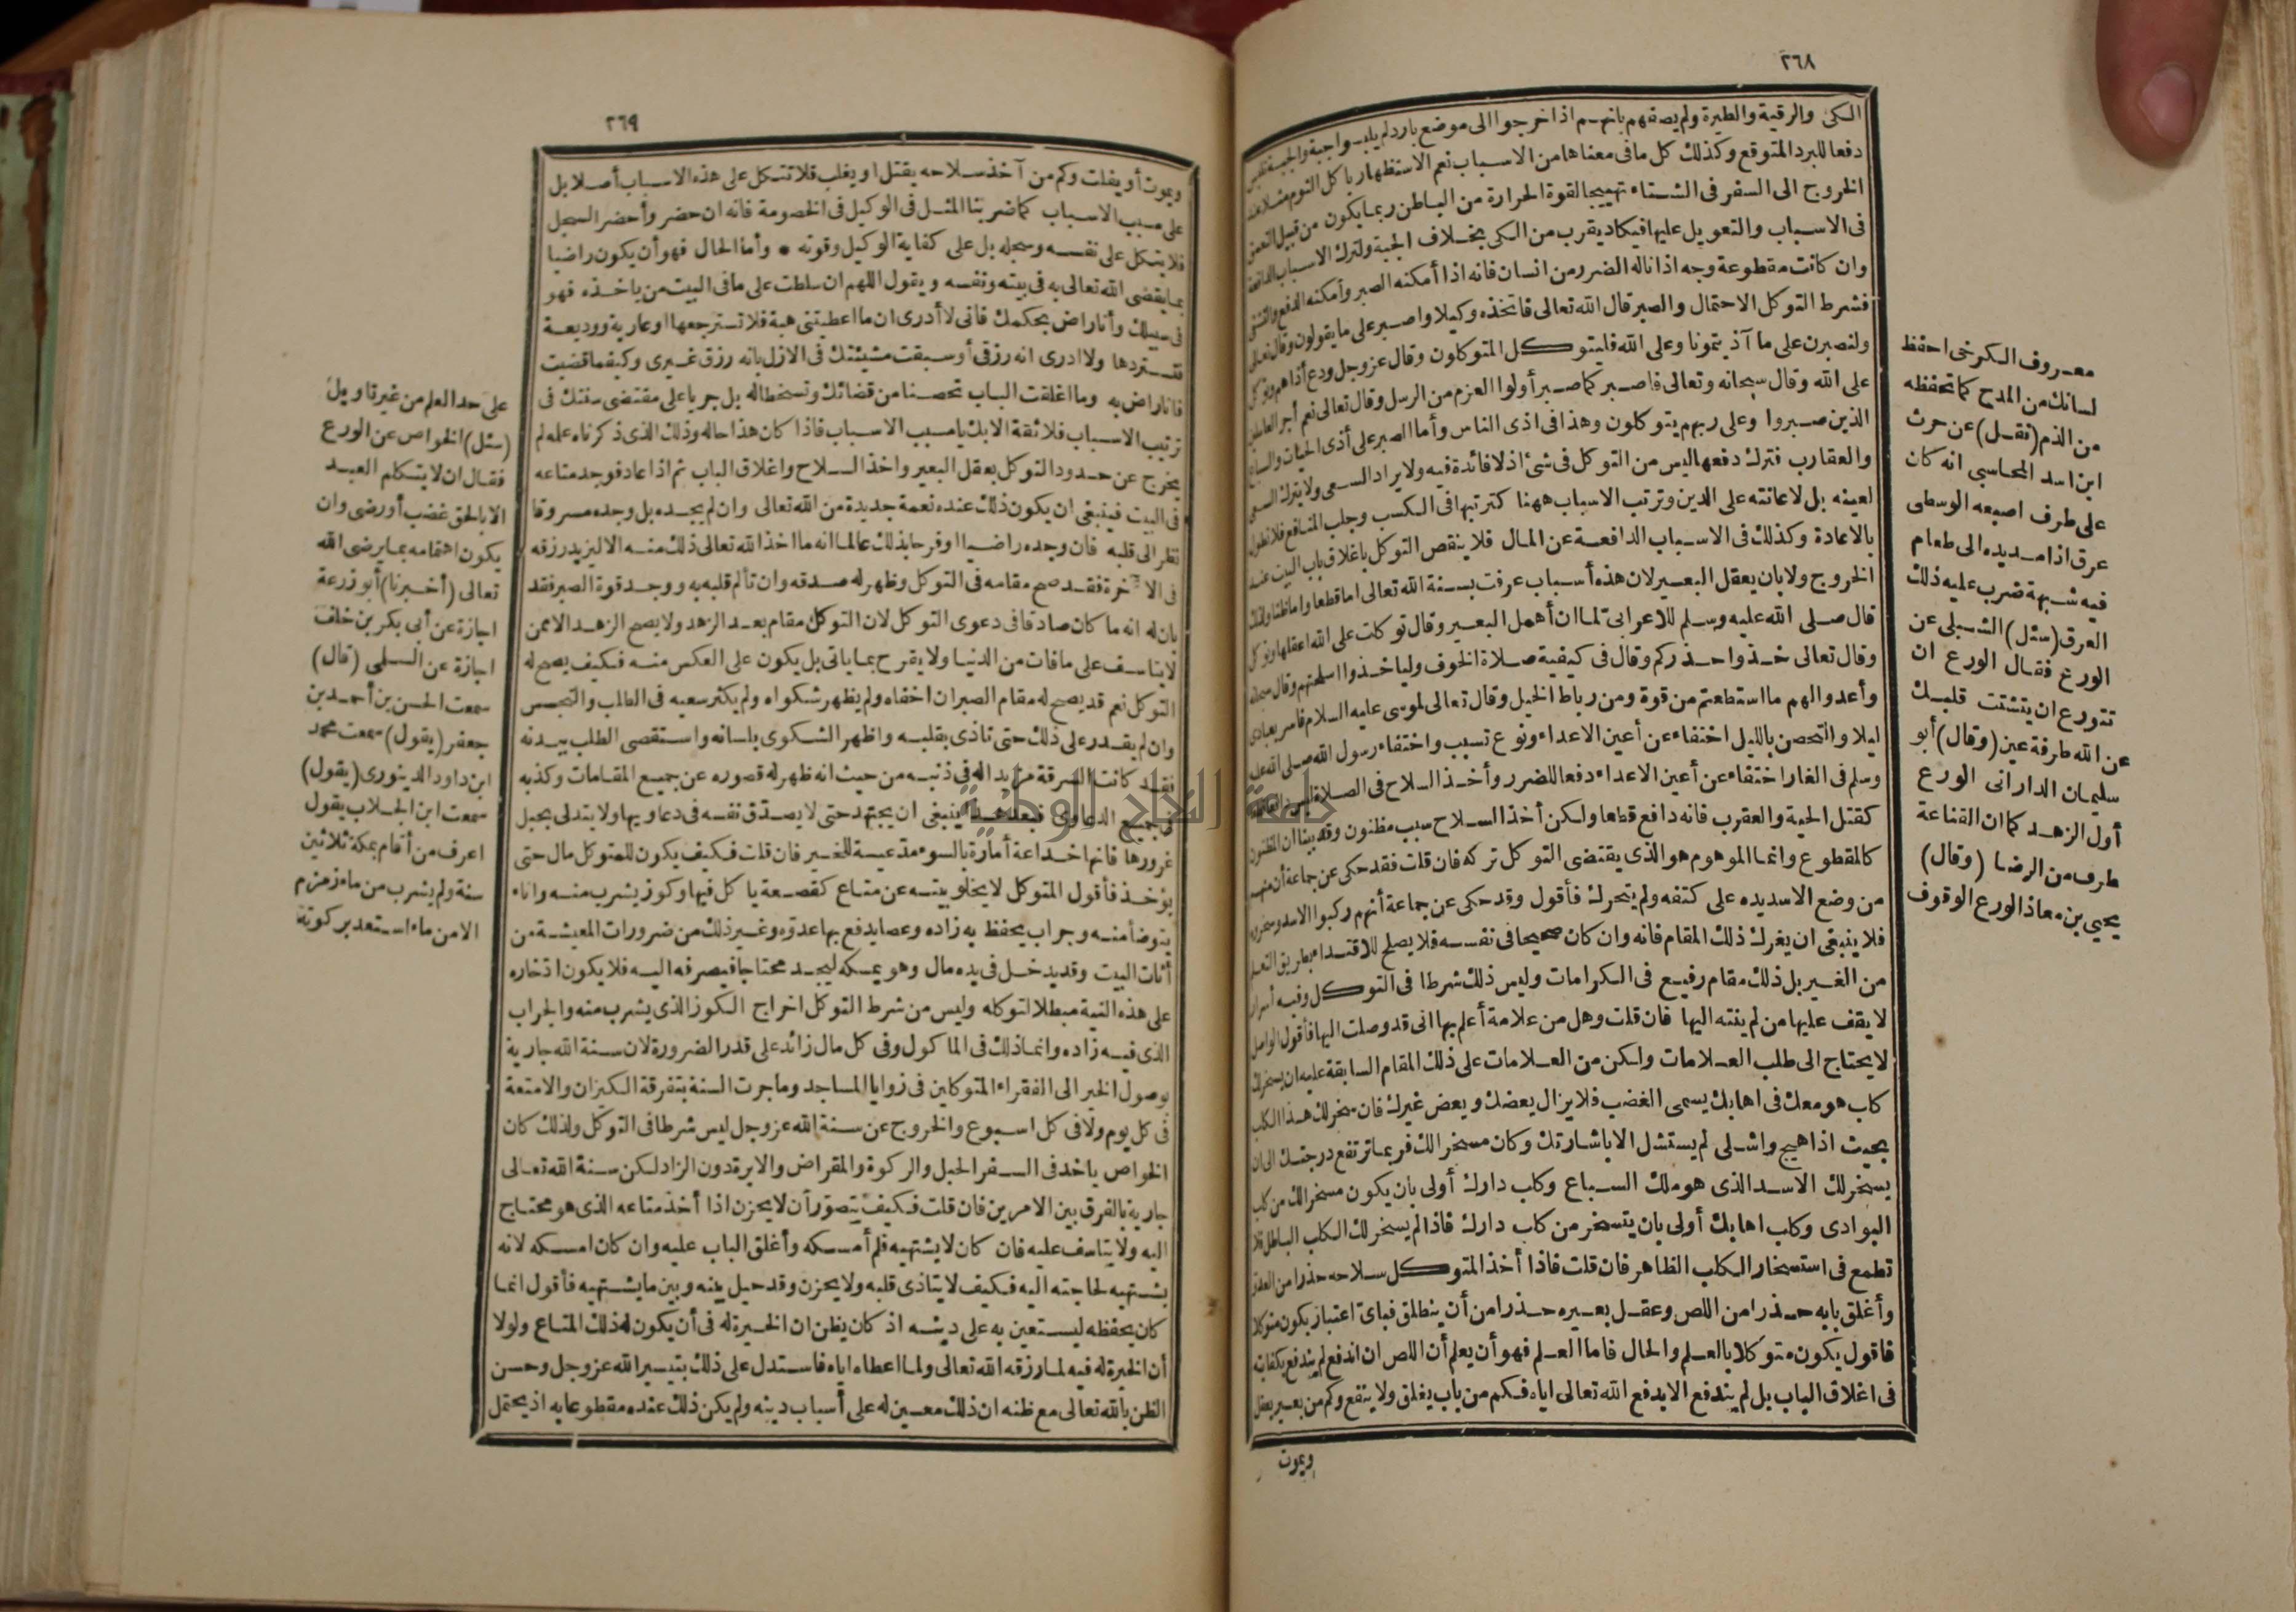 ٢٦٨
الكى والرقية والطيرة ولم يصفهم بانهم اذا خرجوا الى موضع بارد لم يلبسوا جبة والجبة تلبس
دفعا للبرد المتوقع وكذلك كل ما فى معناها من الاسباب نعم الاستظهار باكل الثوم مثلا عند
الخروج الى السفر فى الشتاء تهييجا لقوة الحرارة من الباطن ربما يكون من قبيل التعمق
فى الاسباب والتعويل عليها فيكاد يقرب من الكى بخلاف الجبة ولترك الاسباب الدافعة
وان كانت مقطوعة وجه اذا ناله الضرر من انسان فانه اذا أمكنه الصبر وأمكنه الدفع والتشفى
فشرط التوكل الاحتمال والصبر قال الله تعالى فاتخذه وكيلا واصبر على ما يقولون وقال تعالى
ولنصبرن على ما آذيتمونا وعلى الله فليتوكل المتوكلون وقال عز وجل ودع أذاهم وتوكل
على الله وقال سبحانه وتعالى فاصبر كما صبر أولوا العزم من الرسل وقال تعالى نعم أجر العاملين
الذين صبروا وعلى ربهم يتوكلون وهذا فى اذى الناس وأما الصبر على أذى الحيات والسباع
والعقارب فترك دفعها ليس من التوكل فى شئ اذ لا فائدة فيه ولا يراد السعى ولا يترك السعى
لعينه بل لاعانته على الدين وترتب الاسباب ههنا كترتبها فى الكسب وجلب المنافع فلا نطول
بالاعادة وكذلك فى الاسباب الدافعة عن المال فلا ينقص التوكل باغلاق باب البيت عند
الخروج ولا بان يعقل البعير لان هذه أسباب عرفت بسنة الله تعالى اما قطعا واما ظنا ولذلك
قال صلى الله عليه وسلم للاعرابى لما ان أهمل البعير وقال توكلت على الله اعقلها وتوكل
وقال تعالى خذوا حذركم وقال فى كيفية صلاة الخوف وليأخذوا اسلحتهم وقال سبحانه
وأعدوا لهم ما استطعتم من قوة ومن رباط الخيل وقال تعالى لموسى عليه السلام فاسر بعبادى
ليلا والتحصن بالليل اختفاء عن أعين الاعداء ونوع تسبب واختفاء رسول الله صلى الله عليه
وسلم فى الغار اختفاء عن أعين الاعداء دفعا للضرر وأخذ السلاح فى الصلاة ليس دافعا قطعا
كقتل الحية والعقرب فانه دافع قطعا ولكن أخذ السلاح سبب مظنون وقد بينا ان المظنون
كالمقطوع وانما الموهوم هو الذى يقتضى التوكل تركه فان قلت فقد حكى عن جماعة أن منهم
من وضع الاسد يده على كتفه ولم يتحرك فأقول وقد حكى عن جماعة أنهم ركبوا الاسد وسخروه
فلا ينبغى ان يغرك ذلك المقام فانه وان كان صحيحا فى نفسه فلا يصلح للاقتداء بطريق التعلم
من الغير بل ذلك مقام رفيع فى الكرامات وليس ذلك شرطا فى التوكل وفيه أسرار
لا يقف عليها من لم ينته اليها فان قلت وهل من علامة أعلم بها انى قد وصلت اليها فأقول الواصل
لا يحتاج الى طلب العلامات ولكن من العلامات على ذلك المقام السابقة عليه ان يسخر لك
كلب هو معك فى اهابك يسمى الغضب فلا يزال يعضك ويعض غيرك فان سخر لك هذا الكلب
بحيث اذا هيج واشلى لم يستشل الا باشارتك وكان مسخرا لك فربما ترتفع درجتك الى ان
يسخر لك الاسد الذى هو ملك السباع وكلب دارك أولى بان يكون مسخرا لك من كلب
البوادى وكلب اهابك أولى بان يتسخر من كلب دارك فاذا لم يسخر لك الكلب الباطن فلا
تطمع فى استسخار الكلب الظاهر فان قلت فاذا أخذ المتوكل سلاحه حذرا من العدو
وأغلق بابه حذرا من اللص وعقل بعيره حذرا من أن ينطلق فباى اعتبار يكون متوكلا
فاقول يكون متوكلا بالعلم والحال فاما العلم فهو أن يعلم أن اللص ان اندفع لم يندفع بكفايته
فى اغلاق الباب بل لم يندفع الا بدفع الله تعالى اياه فكم من باب يغلق ولا ينفع وكم من بعير يعقل
ويموت
معروف الكرخى احفظ
لسانك من المدح كما تحفظه
من الذم (نقل) عن حرث
ابن اسد المحاسبى انه كان
على طرف اصبعه الوسطى
عرق اذا مد يده الى طعام
فيه شبهة ضرب عليه ذلك
العرق (سئل) الشبلى عن
الورع فقال الورع ان
تتورع ان يتشتت قلبك
عن الله طرفة عين (وقال) أبو
سليمان الدارانى الورع
أول الزهد كما ان القناعة
طرف من الرضا (وقال)
يحيى بن معاذ الورع الوقوف
٢٦٩
ويموت أو يفلت وكم من آخذ سلاحه يقتل او يغلب فلا تتكل على هذه الاسباب أصلا بل
على مسبب الاسباب كما ضربنا المثل فى الوكيل فى الخصومة فانه ان حضر وأحضر السجل
فلا يتكل على نفسه وسجله بل على كفاية الوكيل وقوته * وأما الحال فهو أن يكون راضيا
بما يقضى الله تعالى به فى بيته ونفسه ويقول اللهم ان سلطت على ما فى البيت من ياخذه فهو
فى سبيلك وأنا راض بحكمك فانى لا أدرى ان ما اعطيتنى هبة فلا تسترجعها او عارية ووديعة
فتستردها ولا ادرى انه رزقى أو سبقت مشيئتك فى الازل بانه رزق غيرى وكيفما قضيت
فانا راض به وما اغلقت الباب تحصنا من قضائك وتسخطا له بل جريا على مقتضى سنتك فى
ترتيب الاسباب فلا ثقة الا بك يا مسبب الاسباب فاذا كان هذا حاله وذلك الذى ذكرناه علمه لم
يخرج عن حدود التوكل بعقل البعير واخذ السلاح واغلاق الباب ثم اذا عاد فوجد متاعه
فى البيت فينبغى ان يكون ذلك عنده نعمة جديدة من الله تعالى وان لم يجده بل وجده مسروقا
نظر الى قلبه فان وجده راضيا او فرحا بذلك عالما انه ما اخذ الله تعالى ذلك منه الا ليزيد رزقه
فى الآخرة فقد صح مقامه فى التوكل وظهر له صدقه وان تألم قلبه به ووجد قوة الصبر فقد
بان له انه ما كان صادقا فى دعوى التوكل لان التوكل مقام بعد الزهد ولا يصح الزهد الا ممن
لا يتاسف على ما فات من الدنيا ولا يفرح بما ياتى بل يكون على العكس منه فكيف يصح له
التوكل نعم قد يصح له مقام الصبر ان اخفاه ولم يظهر شكواه ولم يكثر سعيه فى الطلب والتجسس
وان لم يقدر على ذلك حتى تاذى بقلبه واظهر الشكوى بلسانه واستقصى الطلب ببدنه
فقد كانت السرقة مزيدا له فى ذنبه من حيث انه ظهر له قصوره عن جميع المقامات وكذبه
فى جميع الدعاوى فبعد هذا ينبغى ان يجتهد حتى لا يصدق نفسه فى دعاويها ولا يتدلى بحبل
غرورها فانها خداعة أمارة بالسوء مدعية للخير فان قلت فكيف يكون للمتوكل مال حتى
يؤخذ فأقول المتوكل لا يخلو بيته عن متاع كقصعة ياكل فيها وكوز يشرب منه واناء
يتوضأ منه وجراب يحفظ به زاده وعصا يدفع بها عدوه وغير ذلك من ضرورات المعيشة من
أثاث البيت وقد يدخل فى يده مال وهو يمسكه ليجد محتاجا فيصرفه اليه فلا يكون ادخاره
على هذه النية مبطلا لتوكله وليس من شرط التوكل اخراج الكوز الذى يشرب منه والجراب
الذى فيه زاده وانما ذلك فى الماكول وفى كل مال زائد على قدر الضرورة لان سنة الله جارية
بوصول الخير الى الفقراء المتوكلين فى زوايا المساجد وما جرت السنة بتفرقة الكيزان والامتعة
فى كل يوم ولا فى كل اسبوع والخروج عن سنة الله عز وجل ليس شرطا فى التوكل ولذلك كان
الخواص ياخذ فى السفر الحبل والركوة والمقراض والابرة دون الزاد لكن سنة الله تعالى
جارية بالفرق بين الامرين فان قلت فكيف يتصور أن لا يحزن اذا أخذ متاعه الذى هو محتاج
اليه ولا يتاسف عليه فان كان لا يشتهيه فلم أمسكه وأغلق الباب عليه وان كان امسكه لانه
يشتهيه لحاجته اليه فكيف لا يتاذى قلبه ولا يحزن وقد حيل بينه وبين ما يشتهيه فأقول انما
كان يحفظه ليستعين به على دينه اذ كان يظن ان الخيرة له فى أن يكون له ذلك المتاع ولولا
أن الخيرة له فيه لما رزقه الله تعالى ولما اعطاه اياه فاستدل على ذلك بتيسير الله عز وجل وحسن
الظن بالله تعالى مع ظنه ان ذلك معين له على أسباب دينه ولم يكن ذلك عنده مقطوعا به اذ يحتمل
على حد العلم من غير تاويل
(سئل) الخواص عن الورع
فقال ان لا يتكلم العبد
الا بالحق غضب أو رضى وان
يكون اهتمامه بما يرضى الله
تعالى (أخبرنا) أبو زرعة
اجازة عن أبى بكر بن خلف
اجازة عن السلمى (قال)
سمعت الحسن بن أحمد بن
جعفر (يقول) سمعت محمد
ابن داود الدينورى (يقول)
سمعت ابن الجلاب يقول
اعرف من أقام بمكة ثلاثين
سنة ولم يشرب من ماء زمزم
الا من ماء استعد بركوته
جامعة النجاح الوطنية